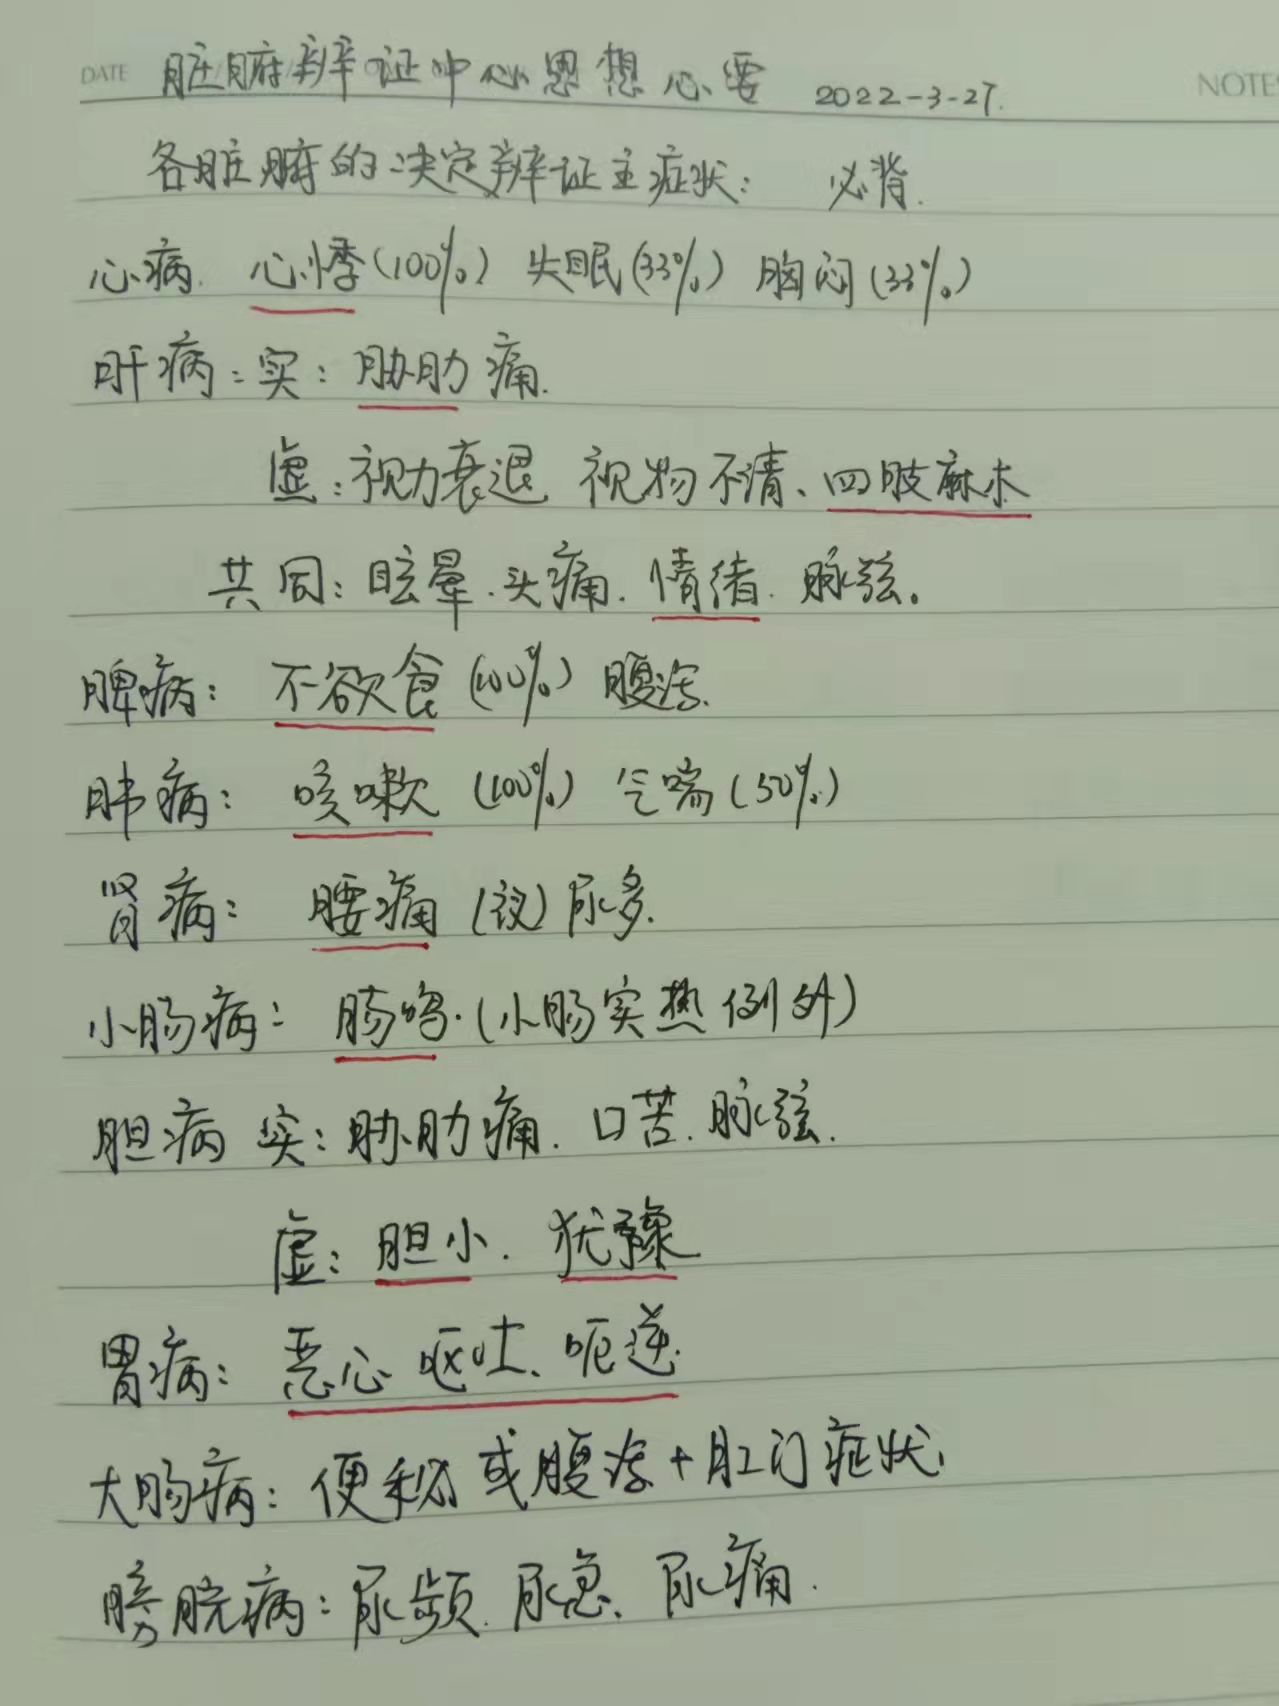 DATE 脏腑辨证中心思想心要 2022-3-27. NOTE
各脏腑的决定辨证主症状: 必背.
心病. 心悸(100%) 失眠(33%) 胸闷(33%)
肝病:实:胁肋痛.
虚:视力衰退 视物不清、四肢麻木
共同:眩晕.头痛.情绪.脉弦。
脾病: 不欲食(100%) 腹泻.
肺病: 咳嗽 (100%) 气喘(50%)
肾病: 腰痛 (议) 尿多.
小肠病: 肠鸣.(小肠实热例外)
胆病 实:胁肋痛.口苦.脉弦.
虚:胆小.犹豫
胃病: 恶心 呕吐、呃逆.
大肠病:便秘或腹泻+肛门症状.
膀胱病:尿频.尿急、尿痛.